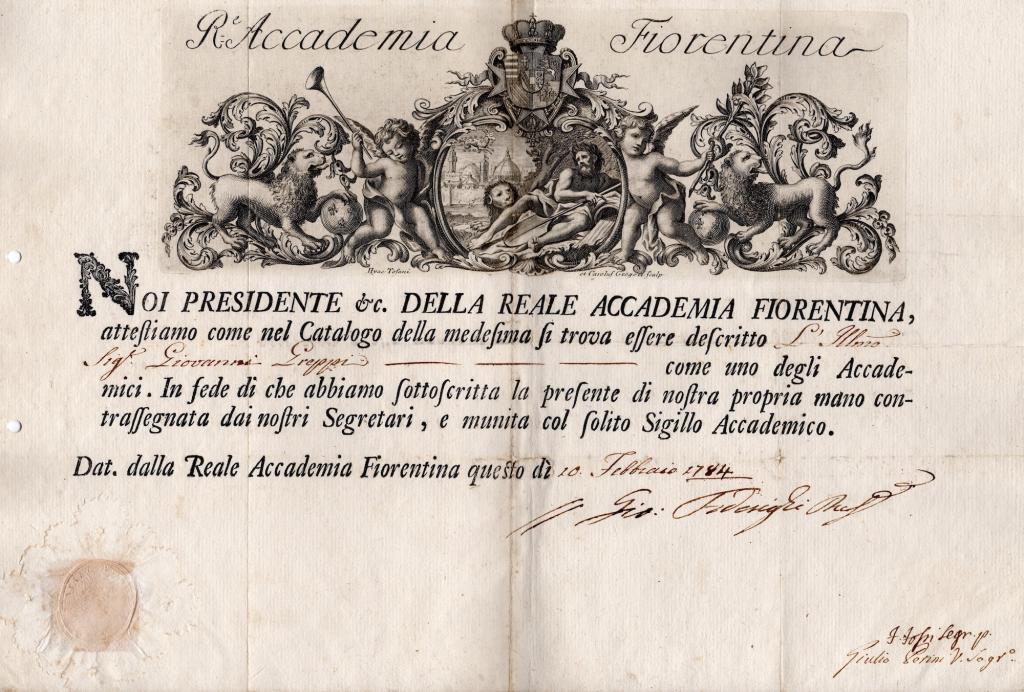 R.e Accademia Fiorentina
Hyac. Tofani et Carolus Gregori sculp
NOI PRESIDENTE &c. DELLA REALE ACCADEMIA FIORENTINA,
atteſtiamo come nel Catalogo della medeſima ſi trova eſſere deſcritto L' Illmo
Sigr. Giovanni Greppi come uno degli Accade-
mici. In fede di che abbiamo ſottoſcritta la preſente di noſtra propria mano con-
traſſegnata dai noſtri Segretari, e munita col ſolito Sigillo Accademico.
Dat. dalla Reale Accademia Fiorentina queſto dì 10. Febbraio 1784
Gio: Federighi
Segr. p.
Giulio Perini V. Segr.o